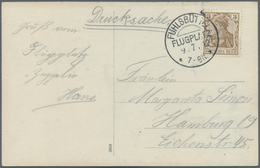 Drucksache
FUHLSBÜTTEL
FLUGPLATZ
9.7.
* 7-8 N *
Gruß vom
Flugplatz
Zeppelin
Hans
Fräulein
Margarete Simon
Hamburg 19
Eichenstr. 45